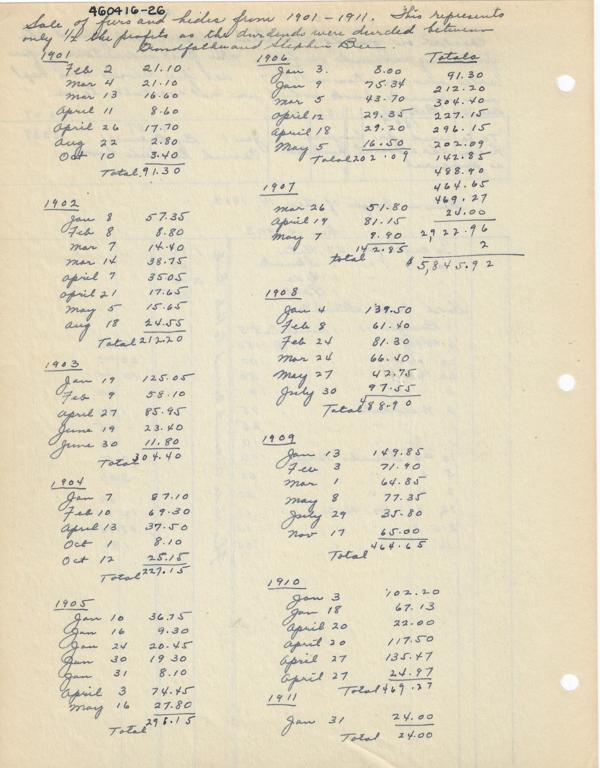 460416-26
Sale of furs and hides from 1901 - 1911. This represents
only 1/2 the profits as the dividends were divided between
Grandfather and Stephen Bee.
1901
Feb 2 21.10
Mar 4 21.10
Mar 13 16.60
April 11 8.60
April 26 17.70
Aug 22 2.80
Oct 10 3.40
Total 91.30
1902
Jan 8 57.35
Feb 8 8.80
Mar 7 14.40
Mar 14 38.75
April 7 35.05
April 21 17.65
May 5 15.65
Aug 18 24.55
Total 212.20
1903
Jan 19 125.05
Feb 9 58.10
April 27 85.95
June 19 23.40
June 30 11.80
Total 304.40
1904
Jan 7 87.10
Feb 10 69.30
April 13 37.50
Oct 1 8.10
Oct 12 25.15
Total 227.15
1905
Jan 10 36.75
Jan 16 9.30
Jan 24 20.45
Jan 30 19 30
Jan 31 8.10
April 3 74.45
May 16 27.80
Total 296.15
1906
Jan 3. 8.00
Jan 9 75.34
Mar 5 43.70
April 12 29.35
April 18 29.20
May 5 16.50
Total 202.09
1907
Mar 26 51.80
April 19 81.15
May 7 9.90
total 142.85
1908
Jan 4 139.50
Feb 8 61.40
Feb 24 81.30
Mar 24 66.40
May 27 42.75
July 30 97.55
Total 488.90
1909
Jan 13 149.85
Feb 3 71.90
Mar 1 64.85
May 8 77.35
July 29 35.80
Nov 17 65.00
Total 464.65
1910
Jan 3 102.20
Jan 18 67.13
April 20 22.00
April 20 117.50
April 27 135.47
April 27 24.97
Total 469.27
1911
Jan 31 24.00
Total 24.00
Totals
91.30
212.20
304.40
227.15
296.15
202.09
142.85
488.90
464.65
469.27
24.00
2,922.96
2
$ 5,845.92